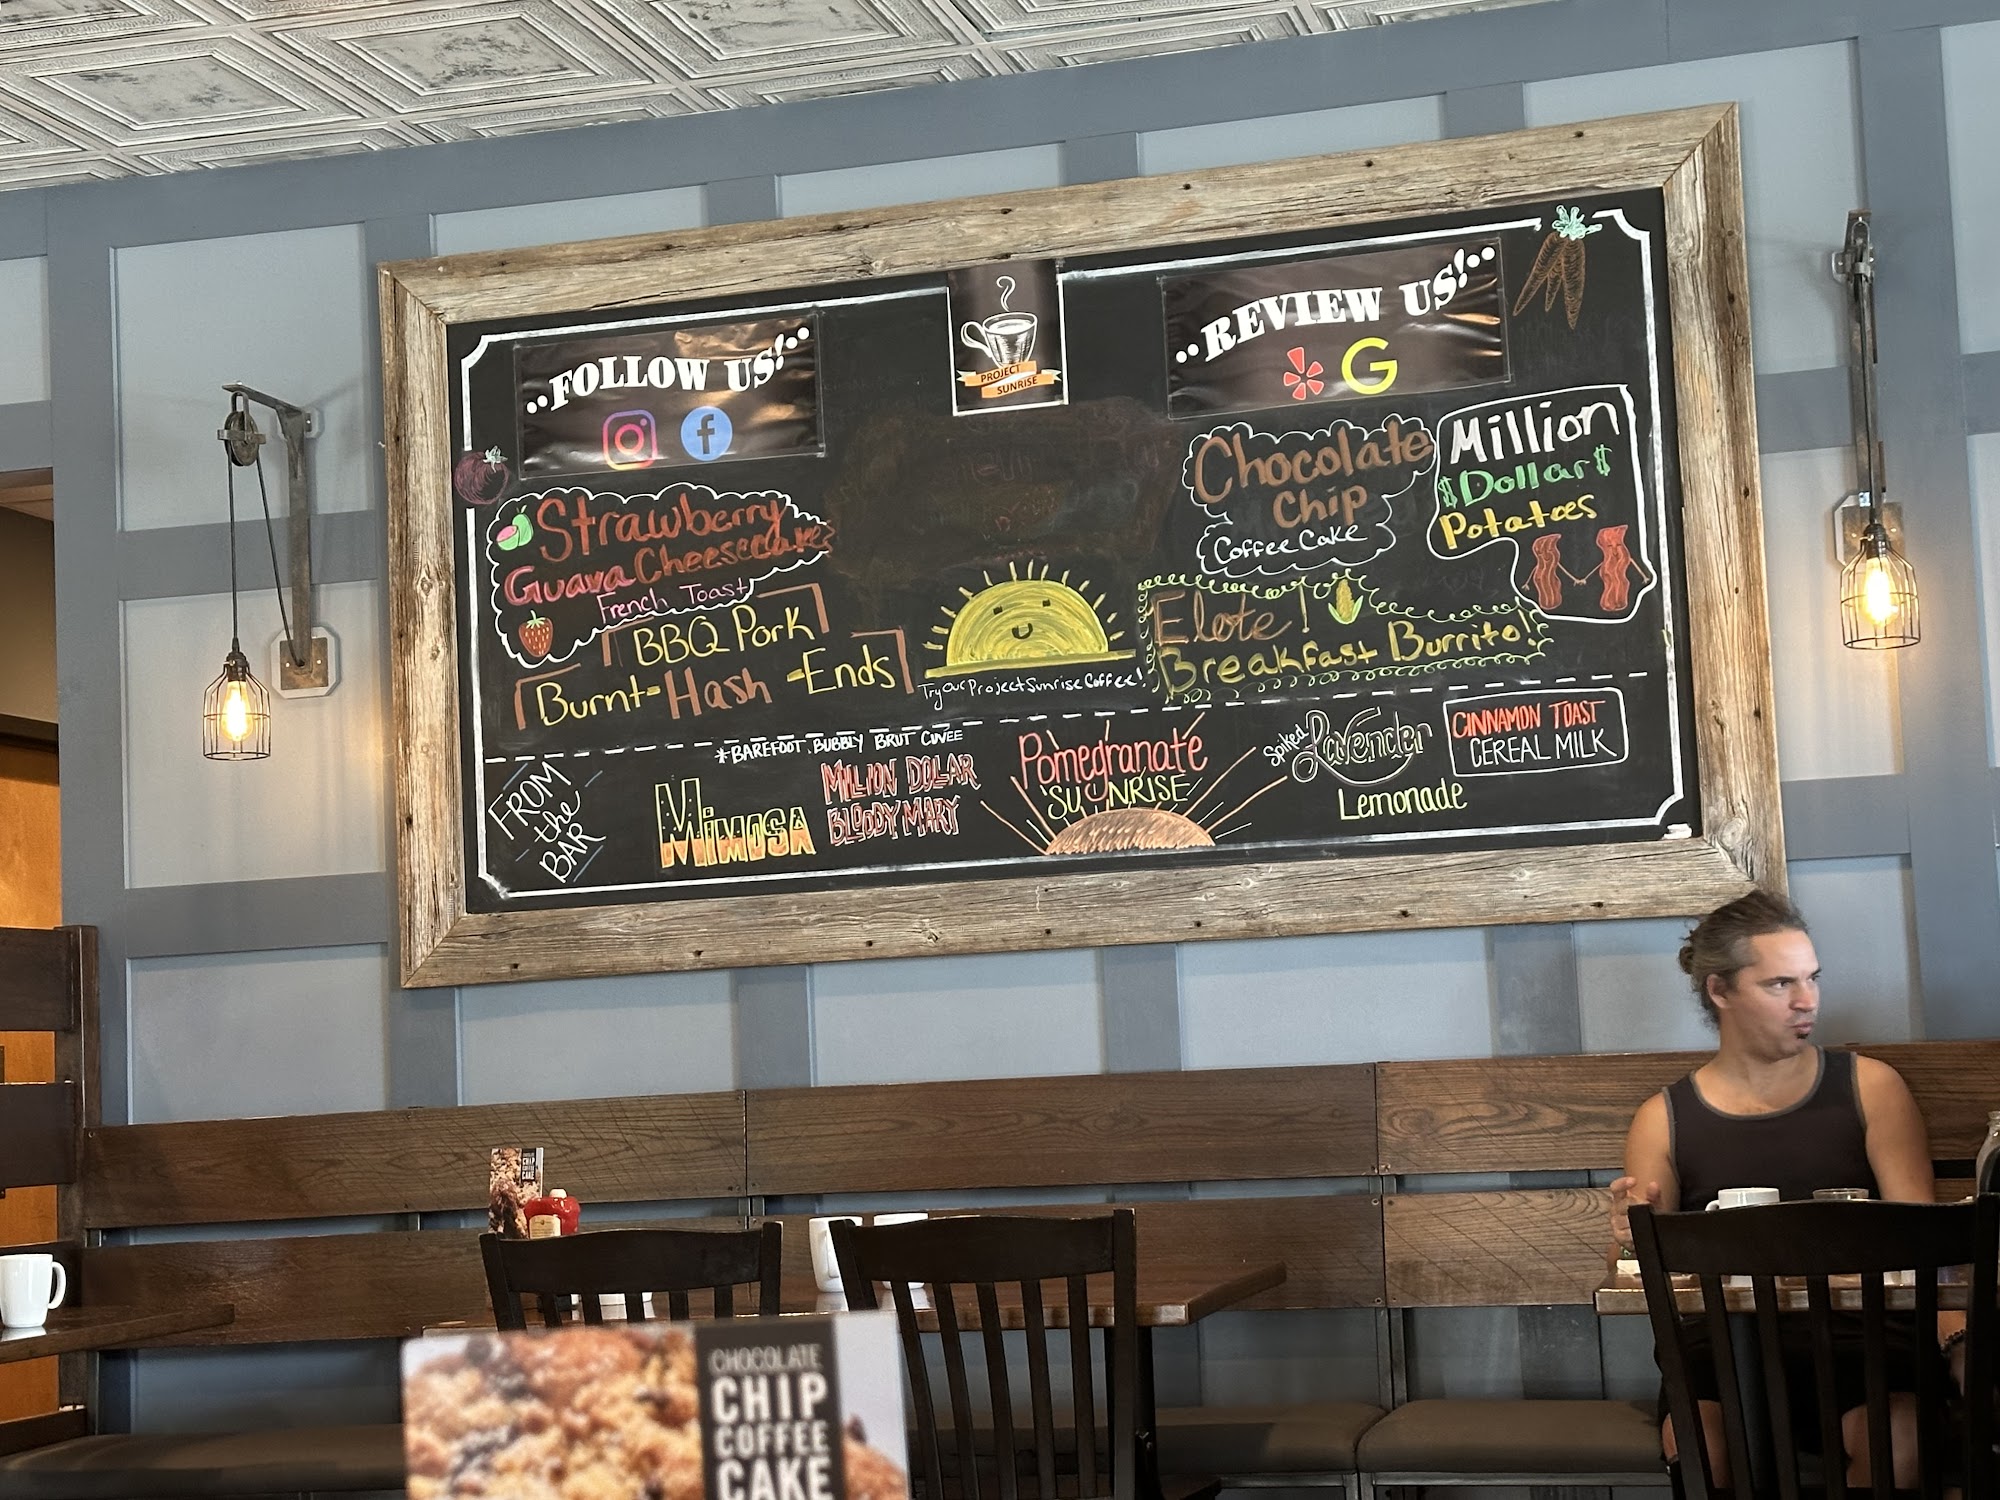 FOLLOW US!
PROJECT
SUNRISE
REVIEW US!
G
Strawberry
Guava Cheesecake
French Toast
BBQ Pork
Burnt-Hash-Ends
Try our Project Sunrise Coffee!
Chocolate
Chip
Coffee Cake
Million
$Dollar$
Potatoes
Elote!
Breakfast Burrito!
FROM
the
BAR
*BAREFOOT BUBBLY BRUT CUVEE
MIMOSA
MILLION DOLLAR
BLOODY MARY
Pomegranate
SUNRISE
Spiked
Lavender
Lemonade
CINNAMON TOAST
CEREAL MILK
CHIP
CAKE
CHOCOLATE
CHIP
COFFEE
CAKE